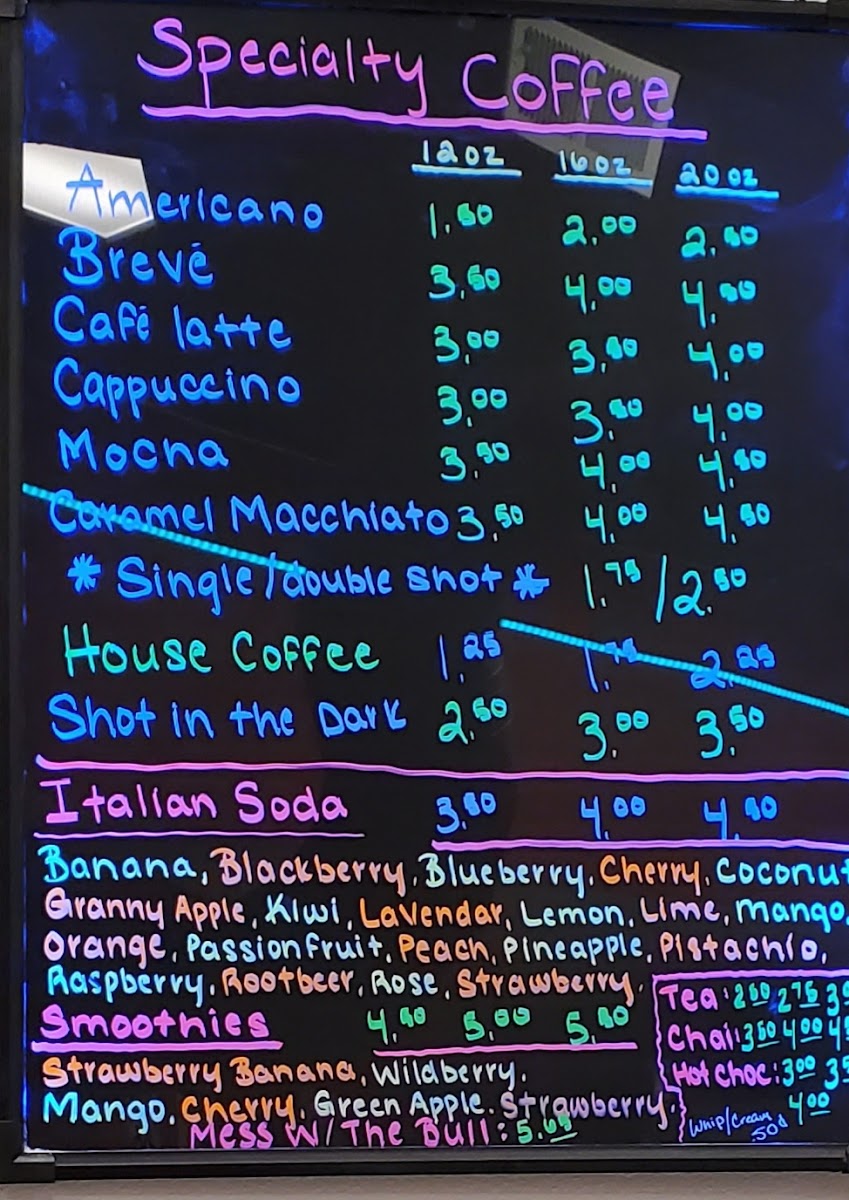 Specialty Coffee
12oz 16oz 20oz
Americano 1.50 2.00 2.50
Brevé 3.50 4.00 4.50
Café latte 3.00 3.50 4.00
Cappuccino 3.00 3.50 4.00
Mocha 3.50 4.00 4.50
Caramel Macchiato 3.50 4.00 4.50
* Single/double shot * 1.75 / 2.50
House Coffee 1.25 1.75 2.25
Shot in the Dark 2.50 3.00 3.50
Italian Soda 3.50 4.00 4.50
Banana, Blackberry, Blueberry, Cherry, Coconut
Granny Apple, Kiwi, Lavendar, Lemon, Lime, Mango,
Orange, Passionfruit, Peach, Pineapple, Pistachio,
Raspberry, Rootbeer, Rose, Strawberry.
Smoothies 4.50 5.00 5.50
Strawberry Banana, Wildberry,
Mango, Cherry, Green Apple, Strawberry,
Mess w/ The Bull: 5.65
Tea: 2.50 2.75
Chai: 3.50 4.00
Hot choc: 3.00
4.00
Whip/Cream .50¢